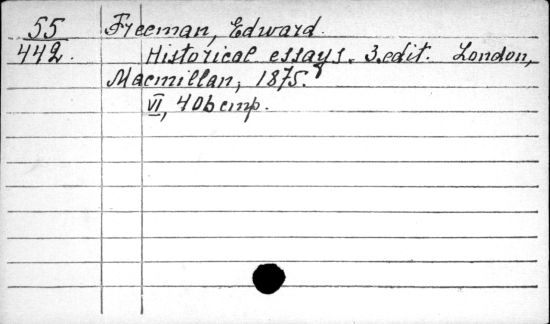 55
442.
Freeman, Edward.
Historical essays. 3.edit. London,
Macmillan, 1875.
VI, 406 стр.